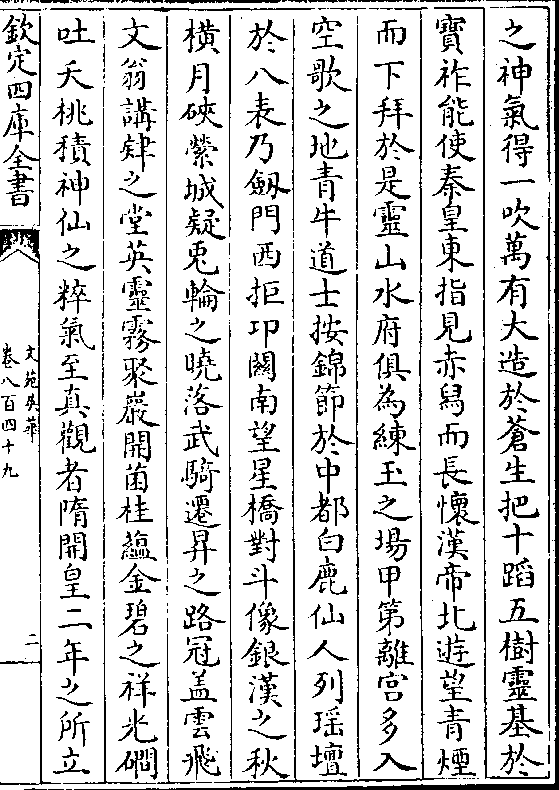 之神氣得一吹萬有大造於蒼生把十蹈五樹靈基於
寶祚能使秦皇東指見赤舄而長懷漢帝北遊望青煙
而下拜於是靈山水府俱為練玉之場甲第離宮多入
空歌之地青牛道士按錦節於中都白鹿仙人列瑶壇
於八表乃劔門西拒卭關南望星橋對斗像銀漢之秋
横月硤縈城疑兎輪之曉落武騎遷昇之路冠盖雲飛
文翁講肄之堂英靈霧聚巖開菌桂藴金碧之祥光磵
吐夭桃積神仙之粹氣至真觀者隋開皇二年之所立
欽定四庫全書
文苑英華
卷八百四十九
二